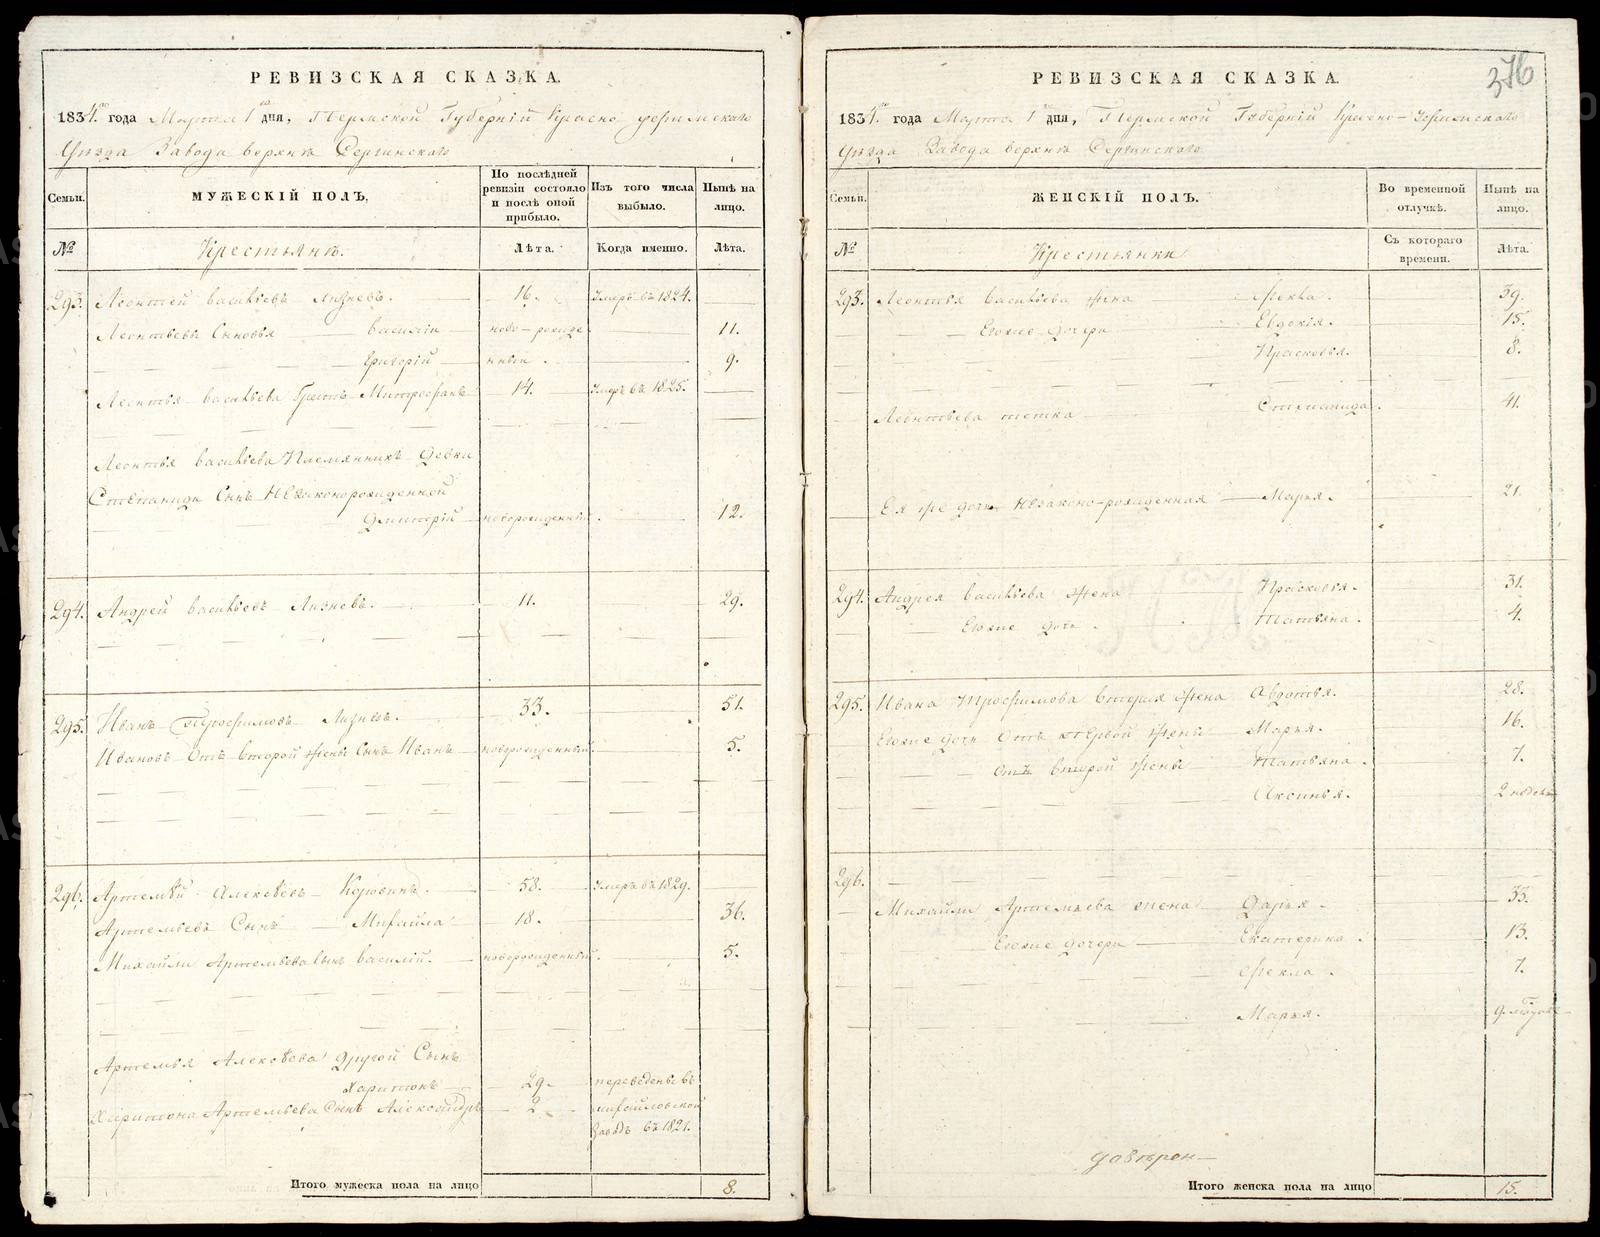 РЕВИЗСКАЯ СКАЗКА.
1834.го года Марта 1го дня, Пермской Губернїи Красно уфимскаго
Уѣзда Завода верхнѣ Сергинскаго
Семьи.
МУЖЕСКІЙ ПОЛЪ,
По послѣдней ревизіи состояло и послѣ оной прибыло.
Изъ того числа выбыло.
Нынѣ на лицо.
№
Крестьянъ.
Лѣта.
Когда именно.
Лѣта.
293. Леонтей васильевъ 16. Умеръ въ 1824.
Леонтьевы Сыновья Василiй ново-рожде 11.
Григорїй нныи. 9.
Леонтья васильева Братъ Митрофанъ 14. Умеръ въ 1825.
Леонтья васильева Племянникъ Девки
Степаниды Сынъ Незаконорожденной
Дмитрїй новорожденный. 12.
294. Андрей васильевъ 11. 29.
295. Иванъ Трофимовъ 33. 51.
Ивановъ Отъ второй Жены Сынъ Иванъ новорожденный 5.
296. Артемїй Алексѣевъ 58. Умеръ въ 1829.
Артемьевъ Сынъ Михайла 18. 36.
Михайлы Артемьева Сынъ василїй. новорожденный. 5.
Артемья Алексѣева другой Сынъ
Харитонъ 29. переведены въ
Харитона Артемьева Сынъ Александръ 2. михайловской
Заводъ въ 1821.
Итого мужеска пола на лицо 8.
376
РЕВИЗСКАЯ СКАЗКА.
1834.го года Марта 1го дня, Пермской Губернїи Красно-Уфимскаго
Уѣзда Завода верхнѣ Сергинскаго
Семьи.
ЖЕНСКІЙ ПОЛЪ.
Во временной отлучкѣ.
Нынѣ на лицо.
№
Крестьянки
Съ котораго времени.
Лѣта.
293. Леонтья васильева Жена Фекла. 39.
Егоже дочери Евдокїя. 15.
Прасковья. 8.
Леонтьева тетка Степанида. 41.
Ея же дочь Незаконо-рожденная Марья. 21.
294. Андрея васильева Жена Прасковья. 31.
Егоже дочь. Татьяна. 4.
295. Ивана Трофимова вторая Жена Авдотья. 28.
Егоже дочь Отъ первой Жены Марья. 16.
Отъ второй Жены Татьяна. 7.
Аксинья. 2 недель
296.
Михайлы Артемьева жена Дарья. 33.
Егоже дочери Екатерина. 13.
Фекла. 7.
Марья. 9.
Итого женска пола на лицо 15.